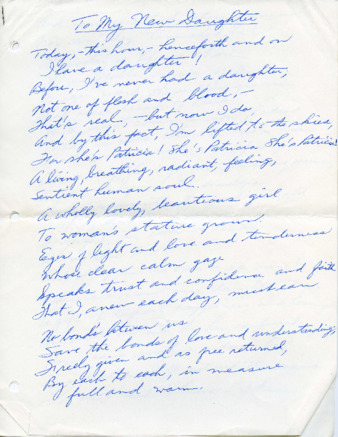 To My New Daughter
Today, - this hour, - henceforth and on
I have a daughter!
Before, I've never had a daughter,
Not one of flesh and blood, -
That's real, - but now I do
And by this fact, I'm lifted to the skies,
For she's Patricia! She's Patricia She's Patricia!
A living, breathing, radiant, feeling,
Sentient human soul.
A wholly lovely, beauteous girl
To woman's stature grown
Eyes of light and love and tenderness
Whose clear calm gaze
Speaks trust and confidence and faith
That I, anew each day, must earn
No bonds between us
Save the bonds of love and understanding,
Freely given and as free returned,
By each to each, in measure
full and warm.